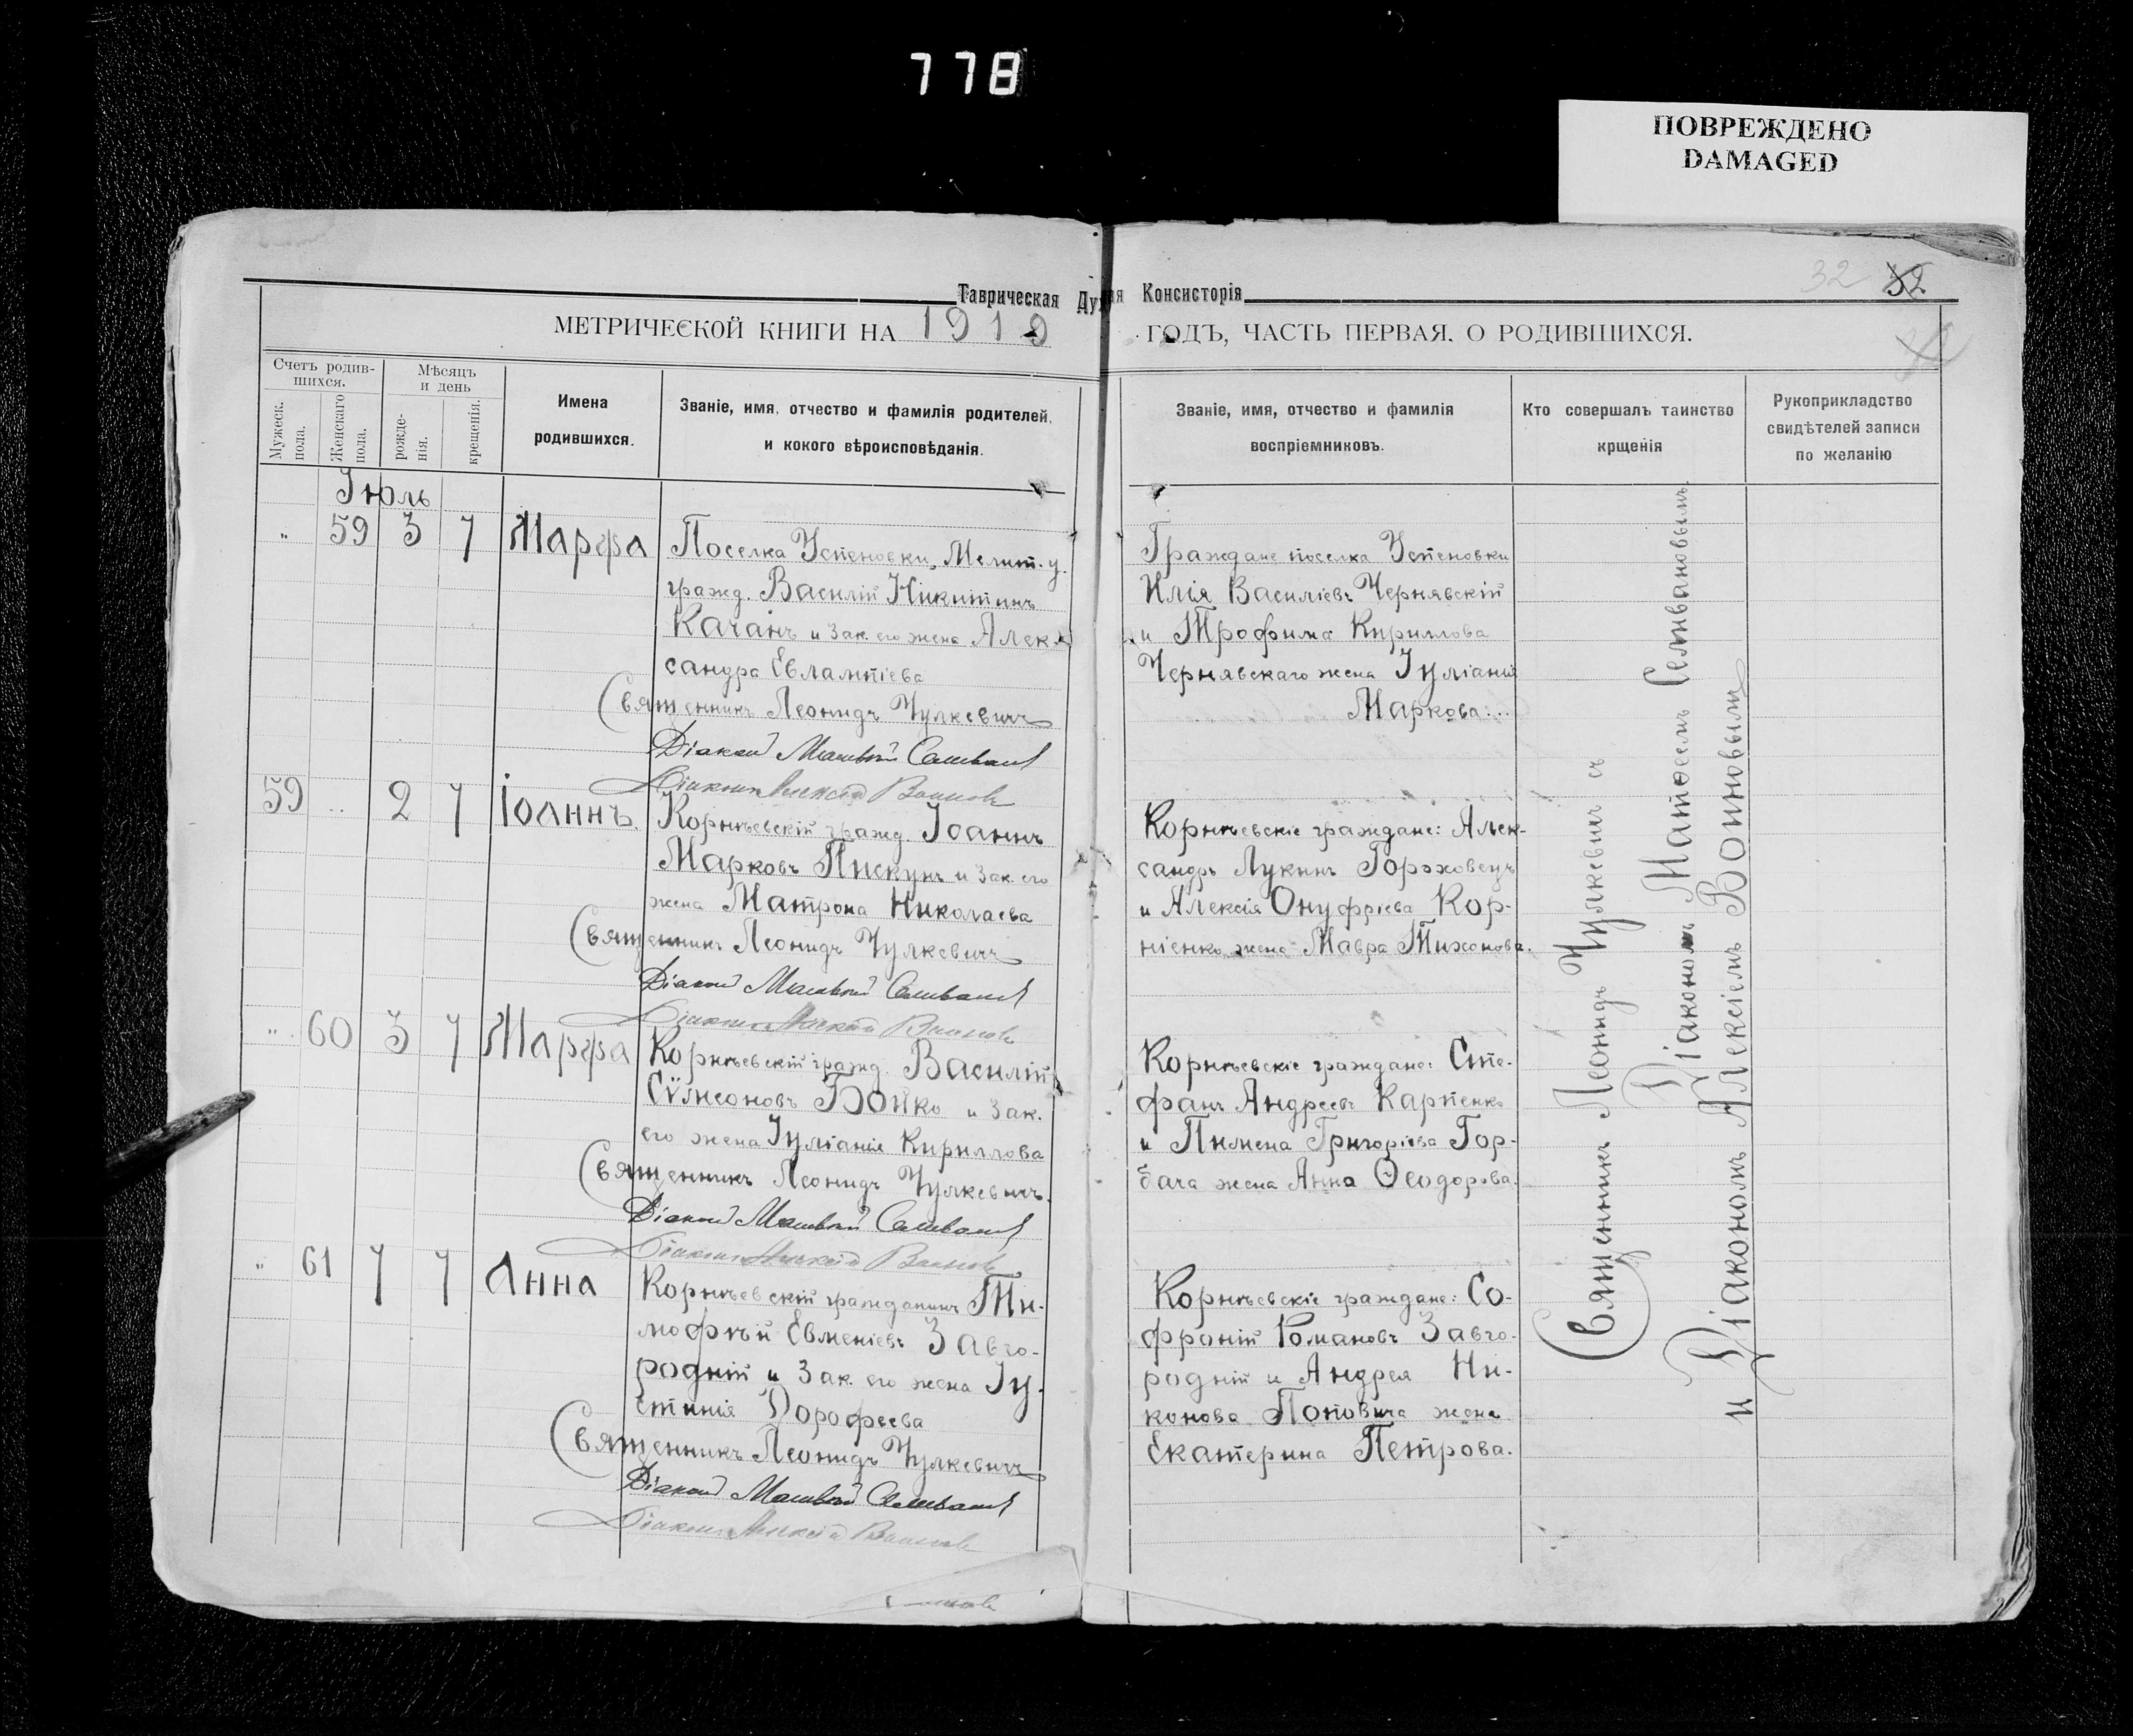 778
ПОВРЕЖДЕНО
DAMAGED
32 32
Таврическая Ду ая Консисторія
МЕТРИЧЕСКОЙ КНИГИ НА 1919 ГОДЪ, ЧАСТЬ ПЕРВАЯ, О РОДИВШИХСЯ.
Счетъ родив-
шихся.
Мужеск.
пола.
Женскаго
пола.
Мѣсяцъ
и день
рожде-
нія.
крещенія.
Имена
родившихся.
Званіе, имя, отчество и фамилія родителей,
и кокого вѣроисповѣданія.
Званіе, имя, отчество и фамилія
воспріемниковъ.
Кто совершалъ таинство
крщенія
Рукоприкладство
свидѣтелей записи
по желанію
Іюль
" 59 3 7 Марфа
Поселка Успеновки, Мелит. у.
гражд. Василій Никитинъ
Качанъ и зак. его жена Алек-
сандра Евлампіева
Священникъ Леонидъ Чулкевичъ
Діаконъ Матвѣй Селиванов
Діаконъ Алексій Вотинов
Граждане поселка Успеновки
Илія Василіевъ Чернявскій
и Трофима Кириллова
Чернявскаго жена Іуліанія
Маркова...
59 .. 2 7 Іоаннъ.
Корнѣевскій гражд. Іоаннъ
Марковъ Пискунъ и зак. его
жена Матрона Николаева
Священникъ Леонидъ Чулкевичъ
Діаконъ Матвѣй Селиванов
Діаконъ Алексій Вотинов
Корнѣевскіе граждане: Алек-
сандръ Лукинъ Горховецъ
и Алексія Онуфріева Кор-
ніенко жена Мавра Тихонова.
" 60 3 7 Марфа
Корнѣевскій гражд. Василій
Сѵмеоновъ Бойко и зак.
его жена Іуліанія Кириллова
Священникъ Леонидъ Чулкевичъ.
Діаконъ Матвѣй Селиванов
Діаконъ Алексій Вотинов
Корнѣевскіе граждане: Сте-
фанъ Андреевъ Карпенко
и Пимена Григоріева Гор-
бача жена Анна Ѳеодорова.
" 61 7 7 Анна
Корнѣевскій гражданинъ Ти-
мофѣй Евменіевъ Завго-
родній и зак. его жена Іу-
стинія Дорофеева
Священникъ Леонидъ Чулкевичъ
Діаконъ Матвѣй Селиванов
Діаконъ Алексій Вотинов
Корнѣевскіе граждане: Со-
фроній Романовъ Завго-
родній и Андрея Ни-
конова Поповича жена
Екатерина Петрова.
Священникъ Леонидъ Чулкевичъ съ
Діакономъ Матѳеемъ Селивановымъ
и Діакономъ Алексіемъ Вотиновымъ